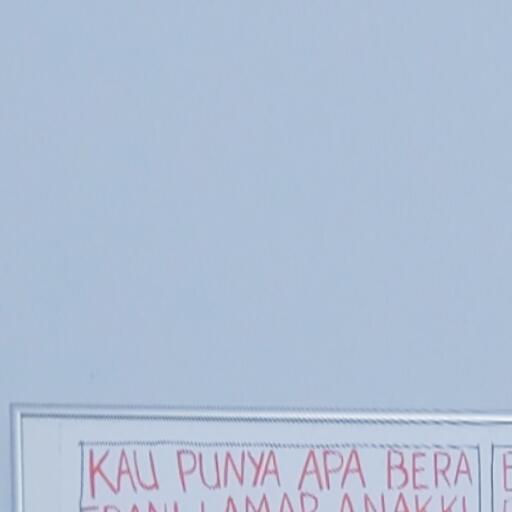 KAU PUNYA APA BERA
ERANI LAMAR ANAKKU